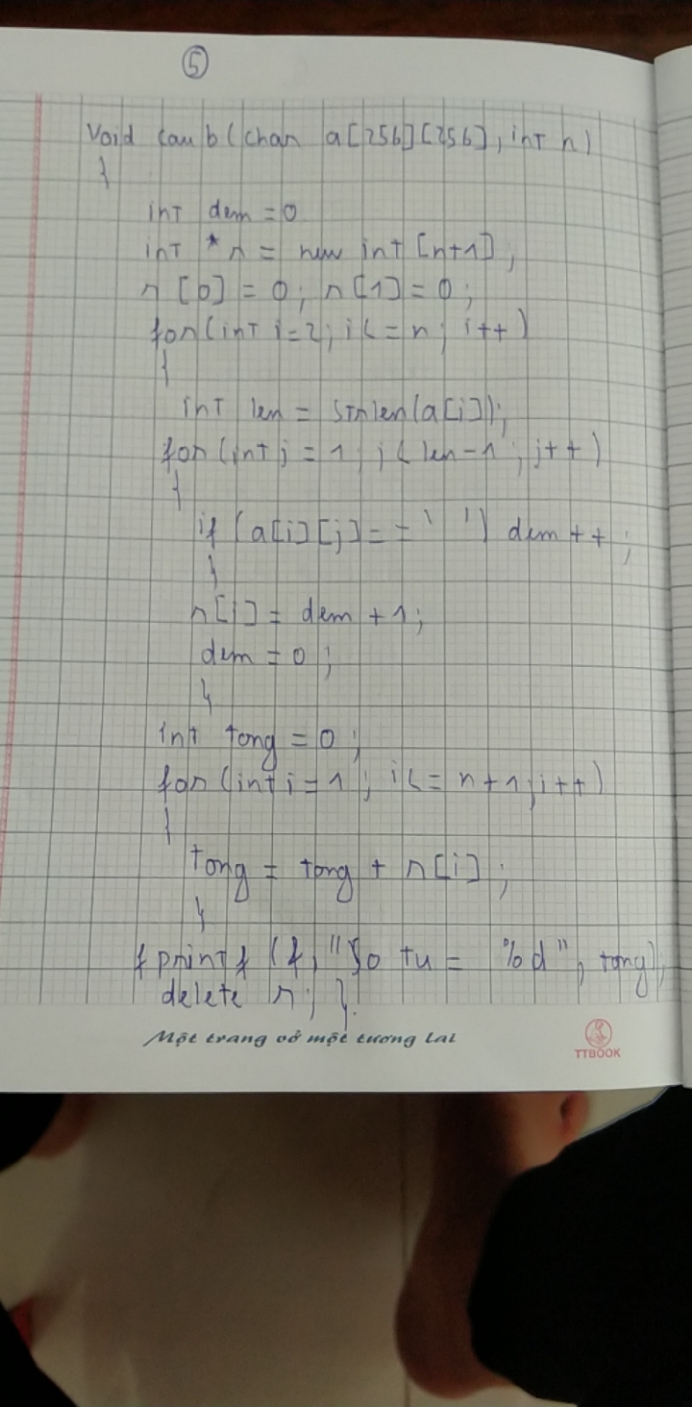 5
void caub(char a[256][256], int n)
{
int dem = 0
int *r = new int [n+1];
r[0] = 0; r[1] = 0;
for(int i=2; i<=n; i++)
{
int len = strlen(a[i]);
for(int j = 1; j < len-1; j++)
{
if (a[i][j] == ' ') dem++;
}
r[i] = dem + 1;
dem = 0;
}
int tong = 0;
for(int i=1; i<= n+1; i++)
{
tong = tong + r[i];
}
fprintf(f, "So tu = %d", tong);
delete r; }
Một trang vở một tương lai
TTBOOK